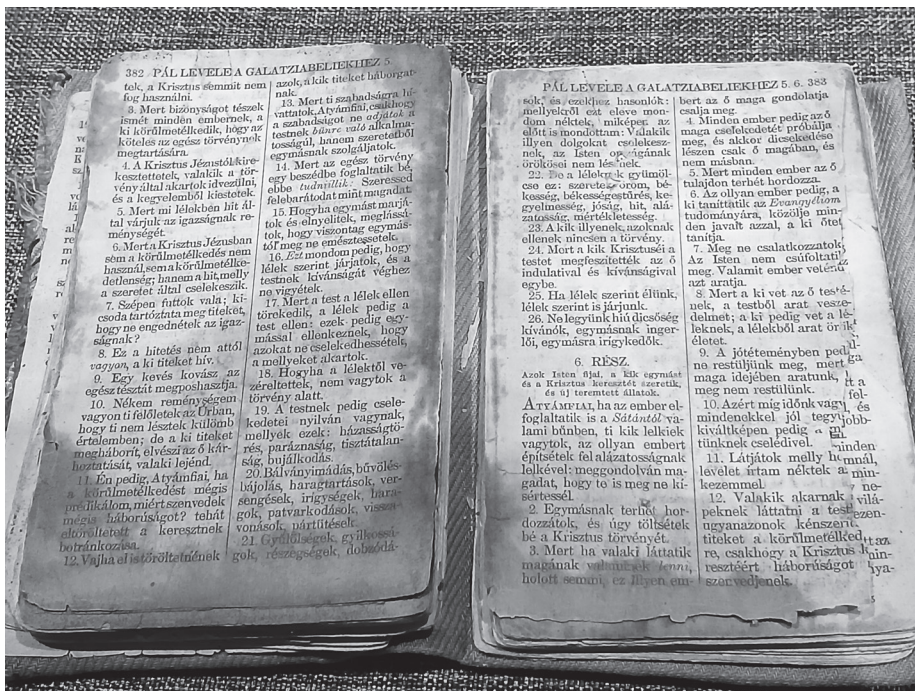 382 PÁL LEVELE A GALATZIABELIEKHEZ 5.
tek, a Krisztus semmit nem
fog használni.
3. Mert bizonyságot tészek
ismét minden embernek, a
ki körülmetélkedik, hogy az
köteles az egész törvénynek
megtartására.
4. A Krisztus Jézustól kire-
kesztettetek, valakik a tör-
vény által akartok idvezülni,
és a kegyelemből kiestetek.
5. Mert mi lélekben hit ál-
tal várjuk az igazságnak re-
ménységét.
6. Mert a Krisztus Jézusban
sem a körülmetélkedés nem
használ, sem a körülmetélke-
detlenség; hanem a hit, melly
a szeretet által cselekeszik.
7. Szépen futtok vala; ki-
csoda tartóztata meg titeket,
hogy ne engednétek az igaz-
ságnak?
8. Ez a hitetés nem attól
vagyon, a ki titeket hív.
9. Egy kevés kovász az
egész tésztát megposhasztja.
10. Nékem reménységem
vagyon ti felőletek az Úrban,
hogy ti nem lésztek külömb
értelemben; de a ki titeket
megháborít, elvészi az ő kár-
hoztatását, valaki lejénd.
11. Én pedig, Atyámfiai, ha
a körülmetélkedést mégis
prédikálom, miért szenvedek
mégis háborúságot? tehát
eltöröltetett a keresztnek
botránkozása.
12. Vajha el is töröltetnének
azok, a kik titeket háborgat-
nak.
13. Mert ti szabadságra hí-
vattatok, Atyámfiai, csakhogy
a szabadságot ne adjátok a
testnek bűnre való alkalma-
tosságúl, hanem szeretetből
egymásnak szolgáljatok.
14. Mert az egész törvény
egy beszédbe foglaltatik bé,
ebbe tudniillik: Szeressed
felebarátodat mint magadat.
15. Hogyha egymást marjá-
tok és elnyelitek, meglássá-
tok, hogy viszontag egymás-
tól meg ne emésztessetek.
16. Ezt mondom pedig, hogy
lélek szerint járjatok, és a
testnek, kívánságát véghez
ne vigyétek.
17. Mert a test a lélek ellen
törekedik, a lélek pedig a
test ellen: ezek pedig egy-
mással ellenkeznek, hogy
azokat ne cselekedhessétek,
a mellyeket akartok.
18. Hogyha a lélektől ve-
zéreltettek, nem vagytok a
törvény alatt.
19. A testnek pedig csele-
kedetei nyilván vagynak,
mellyek ezek: házasságtö-
rés, paráznaság, tisztátalan-
ság, bujálkodás.
20. Bálványimádás, bűvölés-
bájolás, haragtartások, ver-
sengések, irigységek, hara-
gok, patvarkodások, vissza
vonások, pártütések.
21. Gyűlölségek, gyilkossá-
gok, részegségek, dobzódá-
PÁL LEVELE A GALATZIABELIEKHEZ 5. 6. 383
sok, és ezekhez hasonlók:
mellyekről ezt eleve mon-
dom néktek, miképen az
előtt is mondottam: Valakik
illyen dolgokat cselekesz-
nek, az Isten országának
örökösei nem lésznek.
22. De a léleknek gyümöl-
cse ez: szeretet, öröm, bé-
kesség, békességestűrés, ke-
gyelmesség, jóság, hit, alá-
zatosság, mértékletesség.
23. A kik illyenek, azoknak
ellenek nincsen a törvény.
24. Mert a kik Krisztuséi a
testet megfeszítették az ő
indulatival és kívánságival
egybe.
25. Ha lélek szerint élünk,
lélek szerint is járjunk.
26. Ne legyünk hiú dicsőség
kívánók, egymásnak inger-
lői, egymásra irígykedők.
6. RÉSZ.
Azok Isten fijai, a kik egymást
és a Krisztus keresztét szeretik,
és új teremtett állatok.
ATYÁMFIAI, ha az ember el-
foglaltatik is a Sátántól va-
lami bűnben, ti kik lelkiek
vagytok, az ollyan embert
építsétek fel alázatosságnak
lelkével: meggondolván ma-
gadat, hogy te is meg ne kí-
sértessél.
2. Egymásnak terhét hor-
dozzátok, és úgy töltsétek
bé a Krisztus törvényét.
3. Mert ha valaki láttatik
magának valaminek lenni,
holott semmi, ez illyen em-
bert az ő maga gondolatja
csalja meg.
4. Minden ember pedig az ő
maga cselekedetét próbálja
meg, és akkor dicsekedése
lészen csak ő magában, és
nem másban.
5. Mert minden ember az ő
tulajdon terhét hordozza.
6. Az ollyan ember pedig, a
ki taníttatik az Evangyéliom
tudományára, közölje min-
den javalt azzal, a ki őtet
tanítja.
7. Meg ne csalatkozzatok,
Az Isten nem csúfoltatik
meg. Valamit ember vetend
azt aratja.
8. Mert a ki vet az ő testé-
nek, a testből arat vesze-
delmet; a ki pedig vet a lé-
leknek, a lélekből arat örök
életet.
9. A jótéteményben pedig
ne restüljünk meg, mert
maga idejében aratunk, ha
meg nem restülünk.
10. Azért míg időnk vagy
mindenekkel jól tegyü
kiváltképen pedig a
tünknek cselédivel.
11. Látjátok melly h
levelet írtam néktek a
kezemmel.
12. Valakik akarnak
peknek láttatni a test
ugyanazonok kénszerí
titeket a körülmetélked
re, csakhogy a Krisztus k
resztéért háborúságot
szenvedjenek.